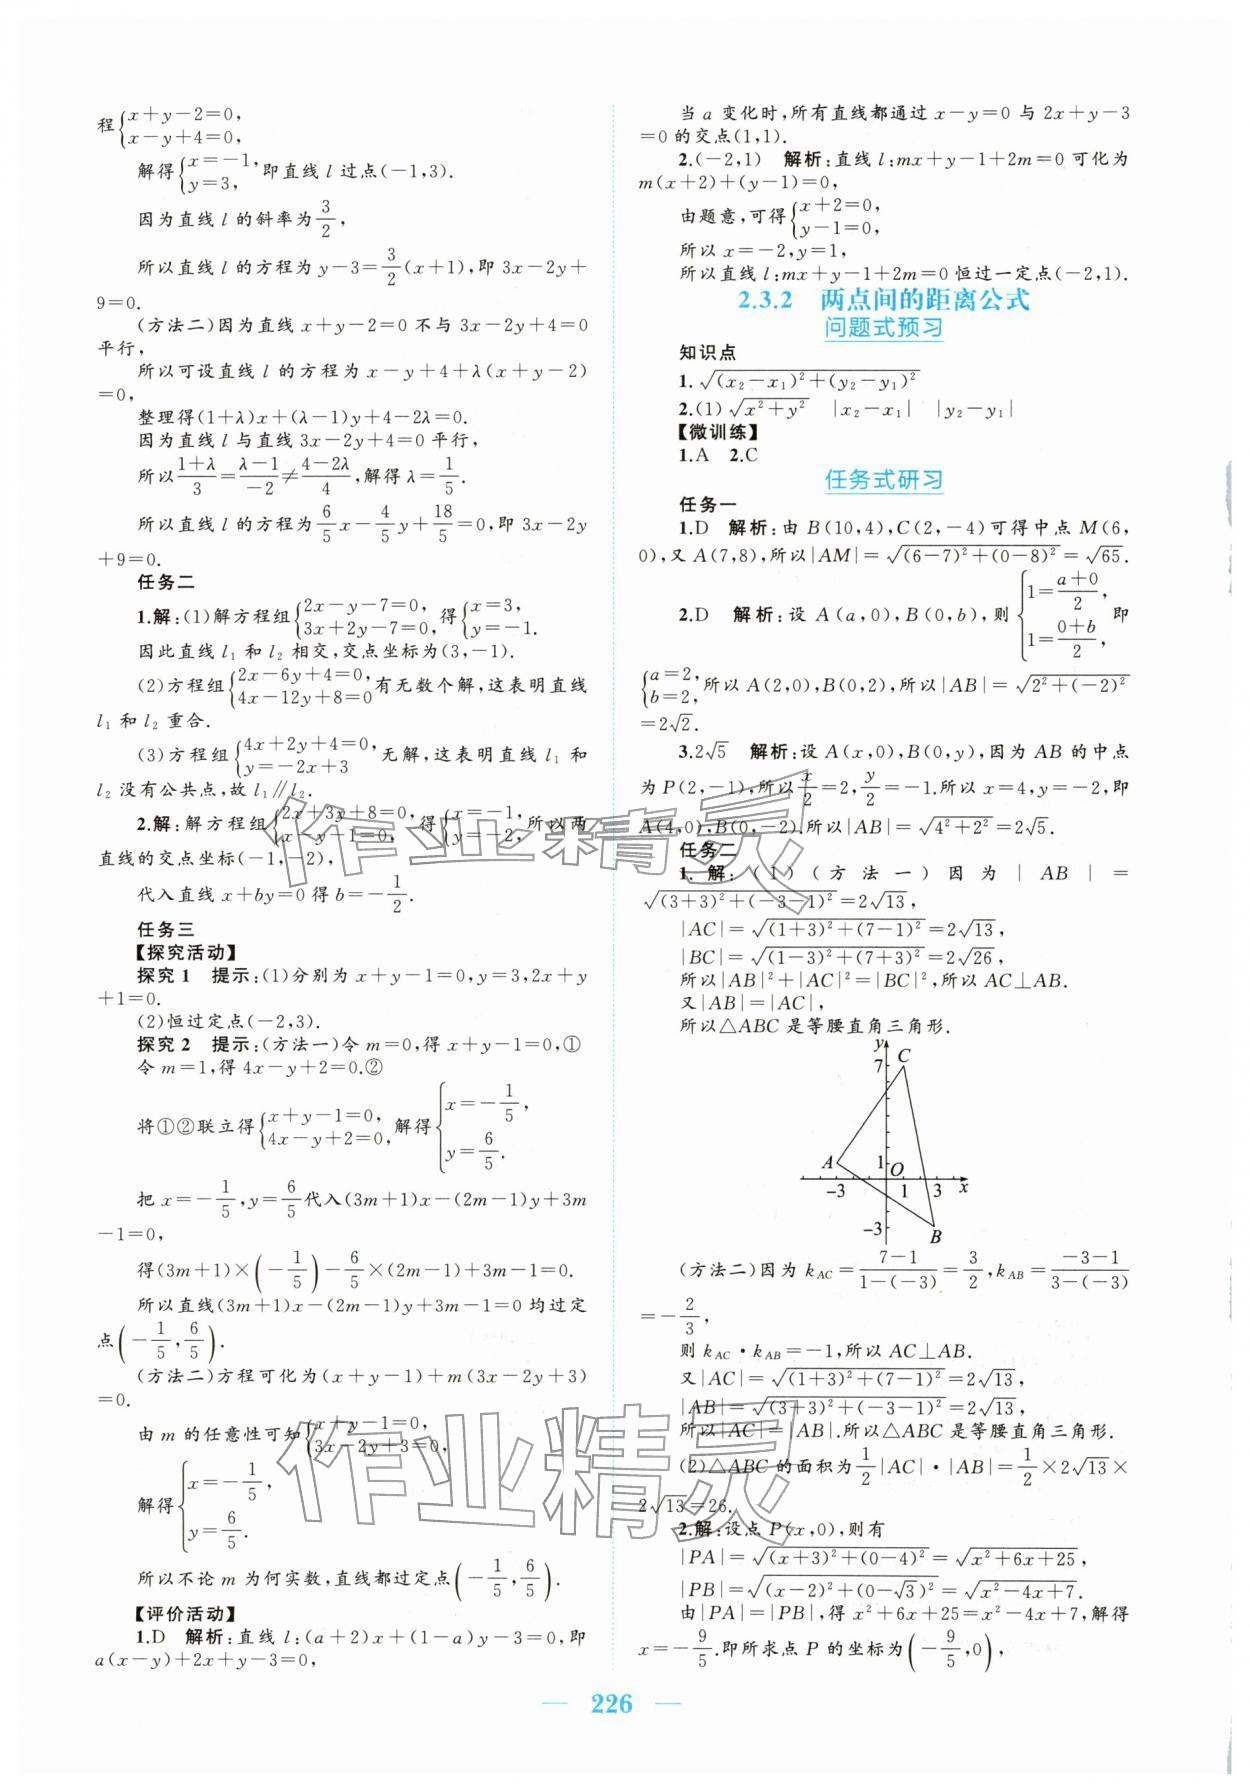 程{x+y-2=0,
x-y+4=0,
解得{x=-1,
y=3, 即直线 l 过点(-1,3).
因为直线 l 的斜率为3/2,
所以直线 l 的方程为 y-3=3/2(x+1),即 3x-2y+
9=0.
(方法二)因为直线 x+y-2=0 不与 3x-2y+4=0
平行,
所以可设直线 l 的方程为 x-y+4+λ(x+y-2)
=0,
整理得(1+λ)x+(λ-1)y+4-2λ=0.
因为直线 l 与直线 3x-2y+4=0 平行,
所以(1+λ)/3=(λ-1)/(-2)≠(4-2λ)/4,解得 λ=1/5.
所以直线 l 的方程为6/5x-4/5y+18/5=0,即 3x-2y
+9=0.
任务二
1.解:(1)解方程组{2x-y-7=0,
3x+2y-7=0, 得{x=3,
y=-1.
因此直线 l₁ 和 l₂ 相交,交点坐标为(3,-1).
(2)方程组{2x-6y+4=0,
4x-12y+8=0 有无数个解,这表明直线
l₁ 和 l₂ 重合.
(3)方程组{4x+2y+4=0,
y=-2x+3 无解,这表明直线 l₁ 和
l₂ 没有公共点,故 l₁∥l₂.
2.解:解方程组{2x+3y+8=0,
x-y-1=0, 得{x=-1,
y=-2, 所以两
直线的交点坐标(-1,-2),
代入直线 x+by=0 得 b=-1/2.
任务三
【探究活动】
探究 1 提示:(1)分别为 x+y-1=0,y=3,2x+y
+1=0.
(2)恒过定点(-2,3).
探究 2 提示:(方法一)令 m=0,得 x+y-1=0,①
令 m=1,得 4x-y+2=0.②
将①②联立得{x+y-1=0,
4x-y+2=0, 解得{x=-1/5,
y=6/5.
把 x=-1/5,y=6/5代入(3m+1)x-(2m-1)y+3m
-1=0,
得(3m+1)×(-1/5)-6/5×(2m-1)+3m-1=0.
所以直线(3m+1)x-(2m-1)y+3m-1=0 均过定
点(-1/5,6/5).
(方法二)方程可化为(x+y-1)+m(3x-2y+3)
=0.
由 m 的任意性可知{x+y-1=0,
3x-2y+3=0,
解得{x=-1/5,
y=6/5.
所以不论 m 为何实数,直线都过定点(-1/5,6/5).
【评价活动】
1.D 解析:直线 l:(a+2)x+(1-a)y-3=0,即
a(x-y)+2x+y-3=0,
当 a 变化时,所有直线都通过 x-y=0 与 2x+y-3
=0 的交点(1,1).
2.(-2,1) 解析:直线 l:mx+y-1+2m=0 可化为
m(x+2)+(y-1)=0,
由题意,可得{x+2=0,
y-1=0,
所以 x=-2,y=1,
所以直线 l:mx+y-1+2m=0 恒过一定点(-2,1).
2.3.2 两点间的距离公式
问题式预习
知识点
1.√((x₂-x₁)²+(y₂-y₁)²)
2.(1)√(x²+y²) |x₂-x₁| |y₂-y₁|
【微训练】
1.A 2.C
任务式研习
任务一
1.D 解析:由 B(10,4),C(2,-4)可得中点 M(6,
0),又 A(7,8),所以|AM|=√((6-7)²+(0-8)²)=√65.
2.D 解析:设 A(a,0),B(0,b),则{1=(a+0)/2,
1=(0+b)/2, 即
{a=2,
b=2, 所以 A(2,0),B(0,2),所以|AB|=√(2²+(-2)²)
=2√2.
3.2√5 解析:设 A(x,0),B(0,y),因为 AB 的中点
为 P(2,-1),所以x/2=2,y/2=-1.所以 x=4,y=-2,即
A(4,0),B(0,-2).所以|AB|=√(4²+2²)=2√5.
任务二
1.解:(1)(方法一)因为|AB|=
√((3+3)²+(-3-1)²)=2√13,
|AC|=√((1+3)²+(7-1)²)=2√13,
|BC|=√((1-3)²+(7+3)²)=2√26,
所以|AB|²+|AC|²=|BC|²,所以 AC⊥AB.
又|AB|=|AC|,
所以△ABC 是等腰直角三角形.
y
7
C
A
1
O
-3
1
3
x
-3
B
(方法二)因为 k_AC=(7-1)/(1-(-3))=3/2,k_AB=(-3-1)/(3-(-3))
=-2/3,
则 k_AC·k_AB=-1,所以 AC⊥AB.
又|AC|=√((1+3)²+(7-1)²)=2√13,
|AB|=√((3+3)²+(-3-1)²)=2√13,
所以|AC|=|AB|.所以△ABC 是等腰直角三角形.
(2)△ABC 的面积为1/2|AC|·|AB|=1/2×2√13×
2√13=26.
2.解:设点 P(x,0),则有
|PA|=√((x+3)²+(0-4)²)=√(x²+6x+25),
|PB|=√((x-2)²+(0-√3)²)=√(x²-4x+7).
由|PA|=|PB|,得 x²+6x+25=x²-4x+7,解得
x=-9/5.即所求点 P 的坐标为(-9/5,0),
226
作业精灵
作业精灵